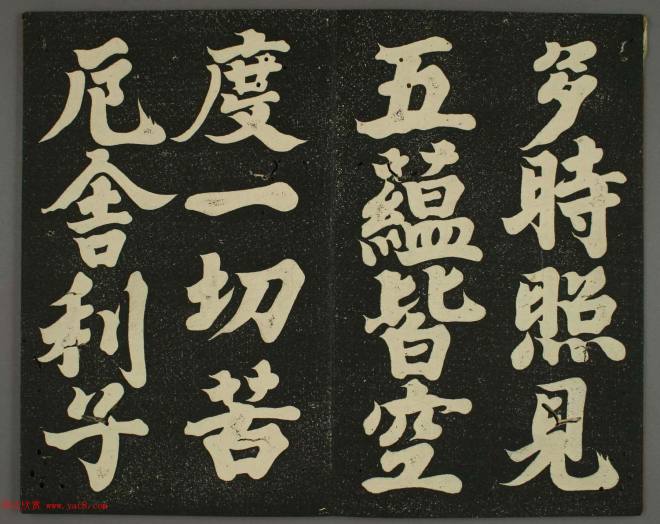 多時照見
五蘊皆空
度一切苦
厄舍利子
www.yac8.com